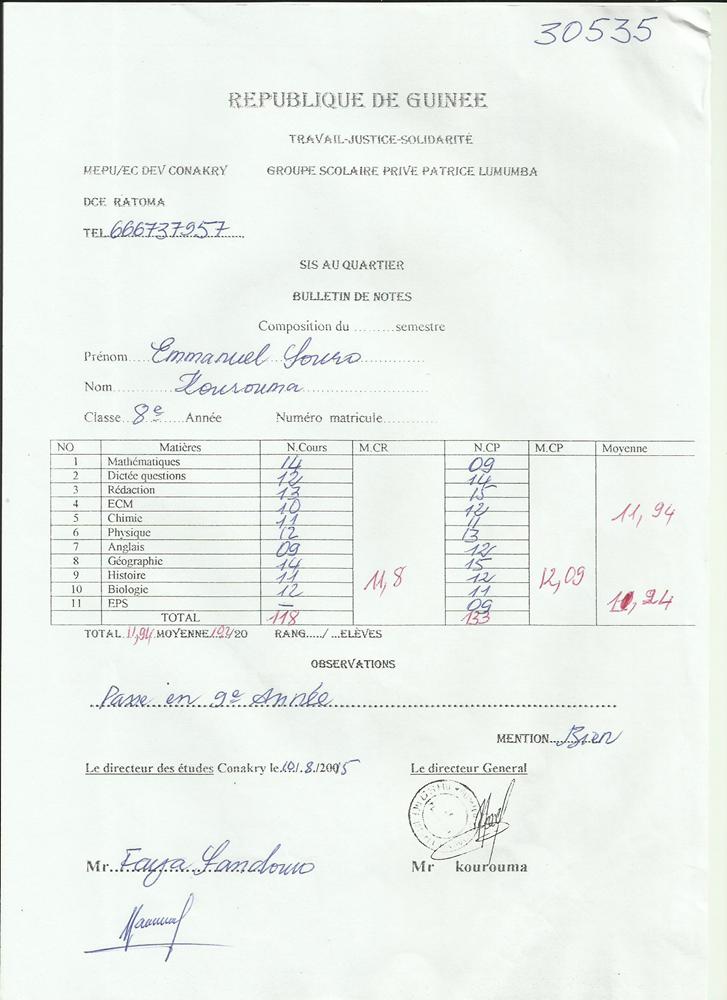 30535
REPUBLIQUE DE GUINEE
TRAVAIL-JUSTICE-SOLIDARITÉ
MEPU/EC DEV CONAKRY GROUPE SCOLAIRE PRIVE PATRICE LUMUMBA
DCE RATOMA
TEL 666737957
SIS AU QUARTIER
BULLETIN DE NOTES
Composition du ......... semestre
Prénom.... Emmanuel
Nom... Kourouma
Classe... 8e ...... Année Numéro matricule............
NO Matières N.Cours M.CR N.CP M.CP Moyenne
1 Mathématiques 14 09
2 Dictée questions 12 14
3 Rédaction 13 15
4 ECM 10 12
5 Chimie 11 11 11,94
6 Physique 12 13
7 Anglais 09 12
8 Géographie 14 15
9 Histoire 11 11,8 12 12,09
10 Biologie 12 11
11 EPS – 09 ,24
TOTAL 118 133
TOTAL 11,94 MOYENNE /20 RANG...../ ...ELÈVES
OBSERVATIONS
Passe en 9e Année
MENTION..... Bien
Le directeur des études Conakry le 10/.8./2005 Le directeur General
Mr... Faya Mr kourouma